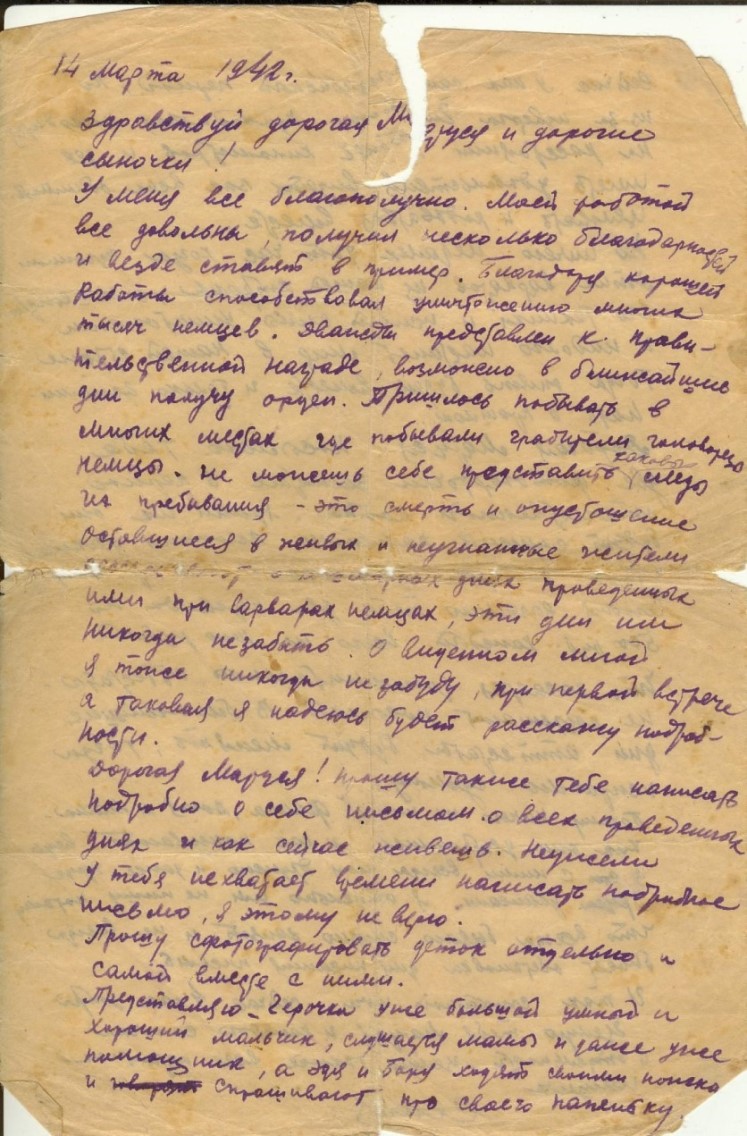 14 марта 1942 г.
Здравствуй дорогая Маруся и дорогие
сыночки!
У меня все благополучно. Моей работой
все довольны, получил несколько благодарностей
и везде ставят в пример. Благодаря хорошей
работы способствовал уничтожению многих
тысяч немцев. Дважды представлен к прави-
тельственной награде, возможно в ближайшие
дни получу орден. Пришлось побывать в
многих местах где побывали грабители головорезы
немцы. Не можешь себе представить каковы следы
их пребывания - это смерть и опустошение
оставшиеся в живых и неугнанные жители
днях проведенных
ими при варварах немцах, эти дни им
никогда незабыть. О виденном мной
я тоже никогда не забуду, при первой встрече
а таковая я надеюсь будет расскажу подроб-
ности.
Дорогая Маруся! Прошу также тебе написать
подробно о себе письмом о всех проведенных
днях и как сейчас живешь. Неужели
у тебя нехватает времени написать подробное
письмо, я этому не верю.
Прошу сфотографировать деток отдельно и
самой вместе с ними.
Представляю - Герочка уже большой умный и
хороший мальчик, слушается мамы и даже уже
помощник, а Эдя и Боря ходят своими
и спрашивают про своего папентку.